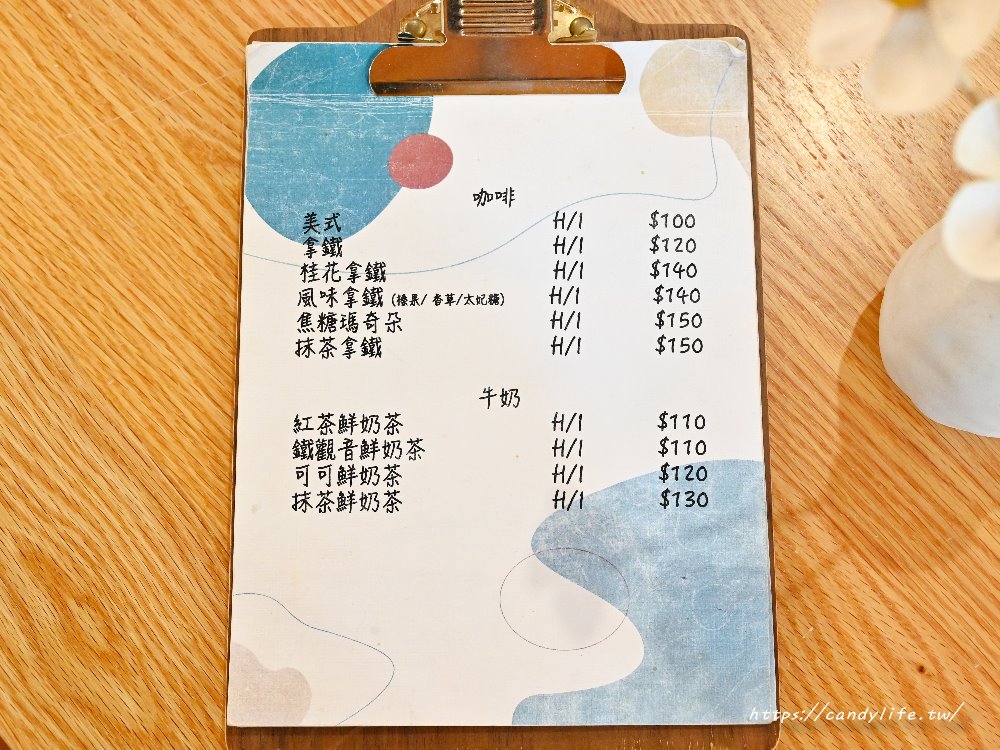 咖啡
美式 H/I $100
拿鐵 H/I $120
桂花拿鐵 H/I $140
風味拿鐵 (榛果/ 香草/太妃糖) H/I $140
焦糖瑪奇朵 H/I $150
抹茶拿鐵 H/I $150
牛奶
紅茶鮮奶茶 H/I $110
鐵觀音鮮奶茶 H/I $110
可可鮮奶茶 H/I $120
抹茶鮮奶茶 H/I $130
https://candylife.tw/